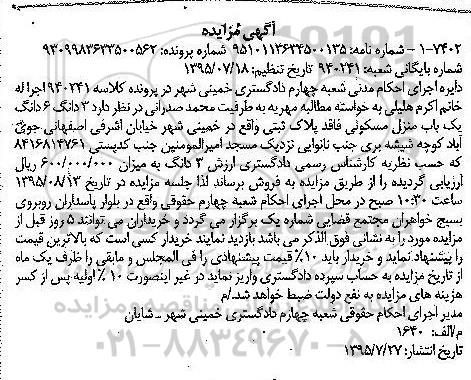 آگهی مزایده
۱-۷۴۰۲ – شماره نامه: ۹۵۱۰۱۱۳۶۳۴۵۰۰۱۳۵ شماره پرونده: ۹۴۰۹۹۸۳۶۳۳۵۰۰۵۶۲
شماره بایگانی شعبه: ۹۴۰۲۴۱ تاریخ تنظیم: ۱۳۹۵/۰۷/۱۸
دایره اجرای احکام مدنی شعبه چهارم دادگستری خمینی شهر در پرونده کلاسه ۹۴۰۲۴۱ اجرا له
خانم اکرم هلیلی به خواسته مطالبه مهریه به طرفیت محمد صدرانی در نظر دارد ۳ دانگ ۶ دانگ
یک باب منزل مسکونی فاقد پلاک ثبتی واقع در خمینی شهر خیابان اشرفی اصفهانی جوی
آباد کوچه شیشه بری جنب نانوایی نزدیک مسجد امیرالمومنین جنب کدپستی ۸۴۱۶۸۱۴۷۶۱
که حسب نظریه کارشناس رسمی دادگستری ارزش ۳ دانگ به میزان ۶۰۰/۰۰۰/۰۰۰ ریال
ارزیابی گردیده را از طریق مزایده به فروش برساند لذا جلسه مزایده در تاریخ ۱۳۹۵/۰۸/۱۳
ساعت ۱۰:۳۰ صبح در محل اجرای احکام شعبه چهارم حقوقی واقع در بلوار پاسداران روبروی
بسیج خواهران مجتمع قضایی شماره یک برگزار می گردد و خریداران می توانند ۵ روز قبل از
مزایده مورد را به نشانی فوق الذکر می باشد بازدید نمایند خریدار کسی است که بالاترین قیمت
را پیشنهاد نماید و خریدار باید ۱۰٪ قیمت پیشنهادی را فی المجلس و مابقی را ظرف یک ماه
از تاریخ مزایده به حساب سپرده دادگستری واریز نماید در غیر اینصورت ۱۰٪ اولیه پس از کسر
هزینه های مزایده به نفع دولت ضبط خواهد شد./م
مدیر اجرای احکام حقوقی شعبه چهارم دادگستری خمینی شهر – شایان
م/الف: ۱۶۴۰
تاریخ انتشار: ۱۳۹۵/۷/۲۷
۰۲۱-۸۸۳۴۹۶۷۰-۵